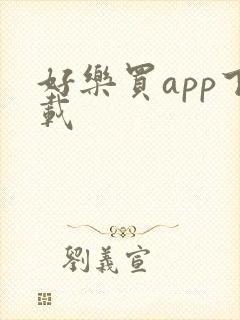 好樂買app下
載
劉義宣